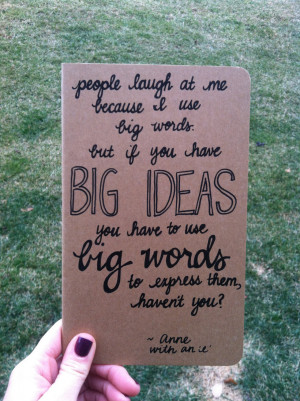 people laugh at me
because I use
big words.
but if you have
BIG IDEAS
you have to use
big words
to express them,
haven't you?
~ anne
with an 'e'